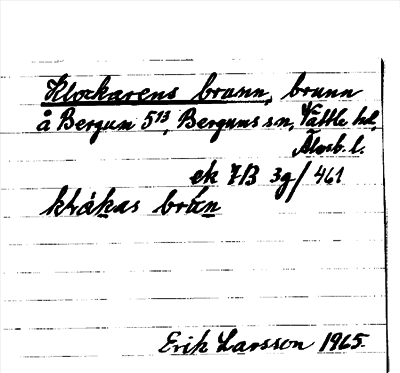 Klockarens brunn, brunn
å Bergum 5¹³, Bergums sn, Vättle hd,
Älvsb. l.
ek 7B 3g/461
klråkas brun
Erik Larsson 1965.